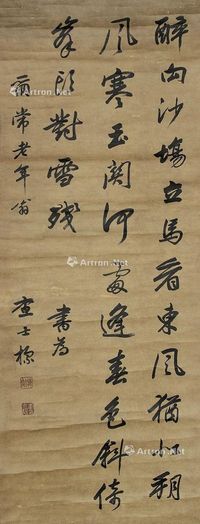 醉向沙場立馬看東風猶似朔
風寒玉關何處逢春色斜倚
峯頭對雪殘
爾常老年翁
書為
查士標
Artron.Net
Artron.Net
Artron.Net
Artron.Net